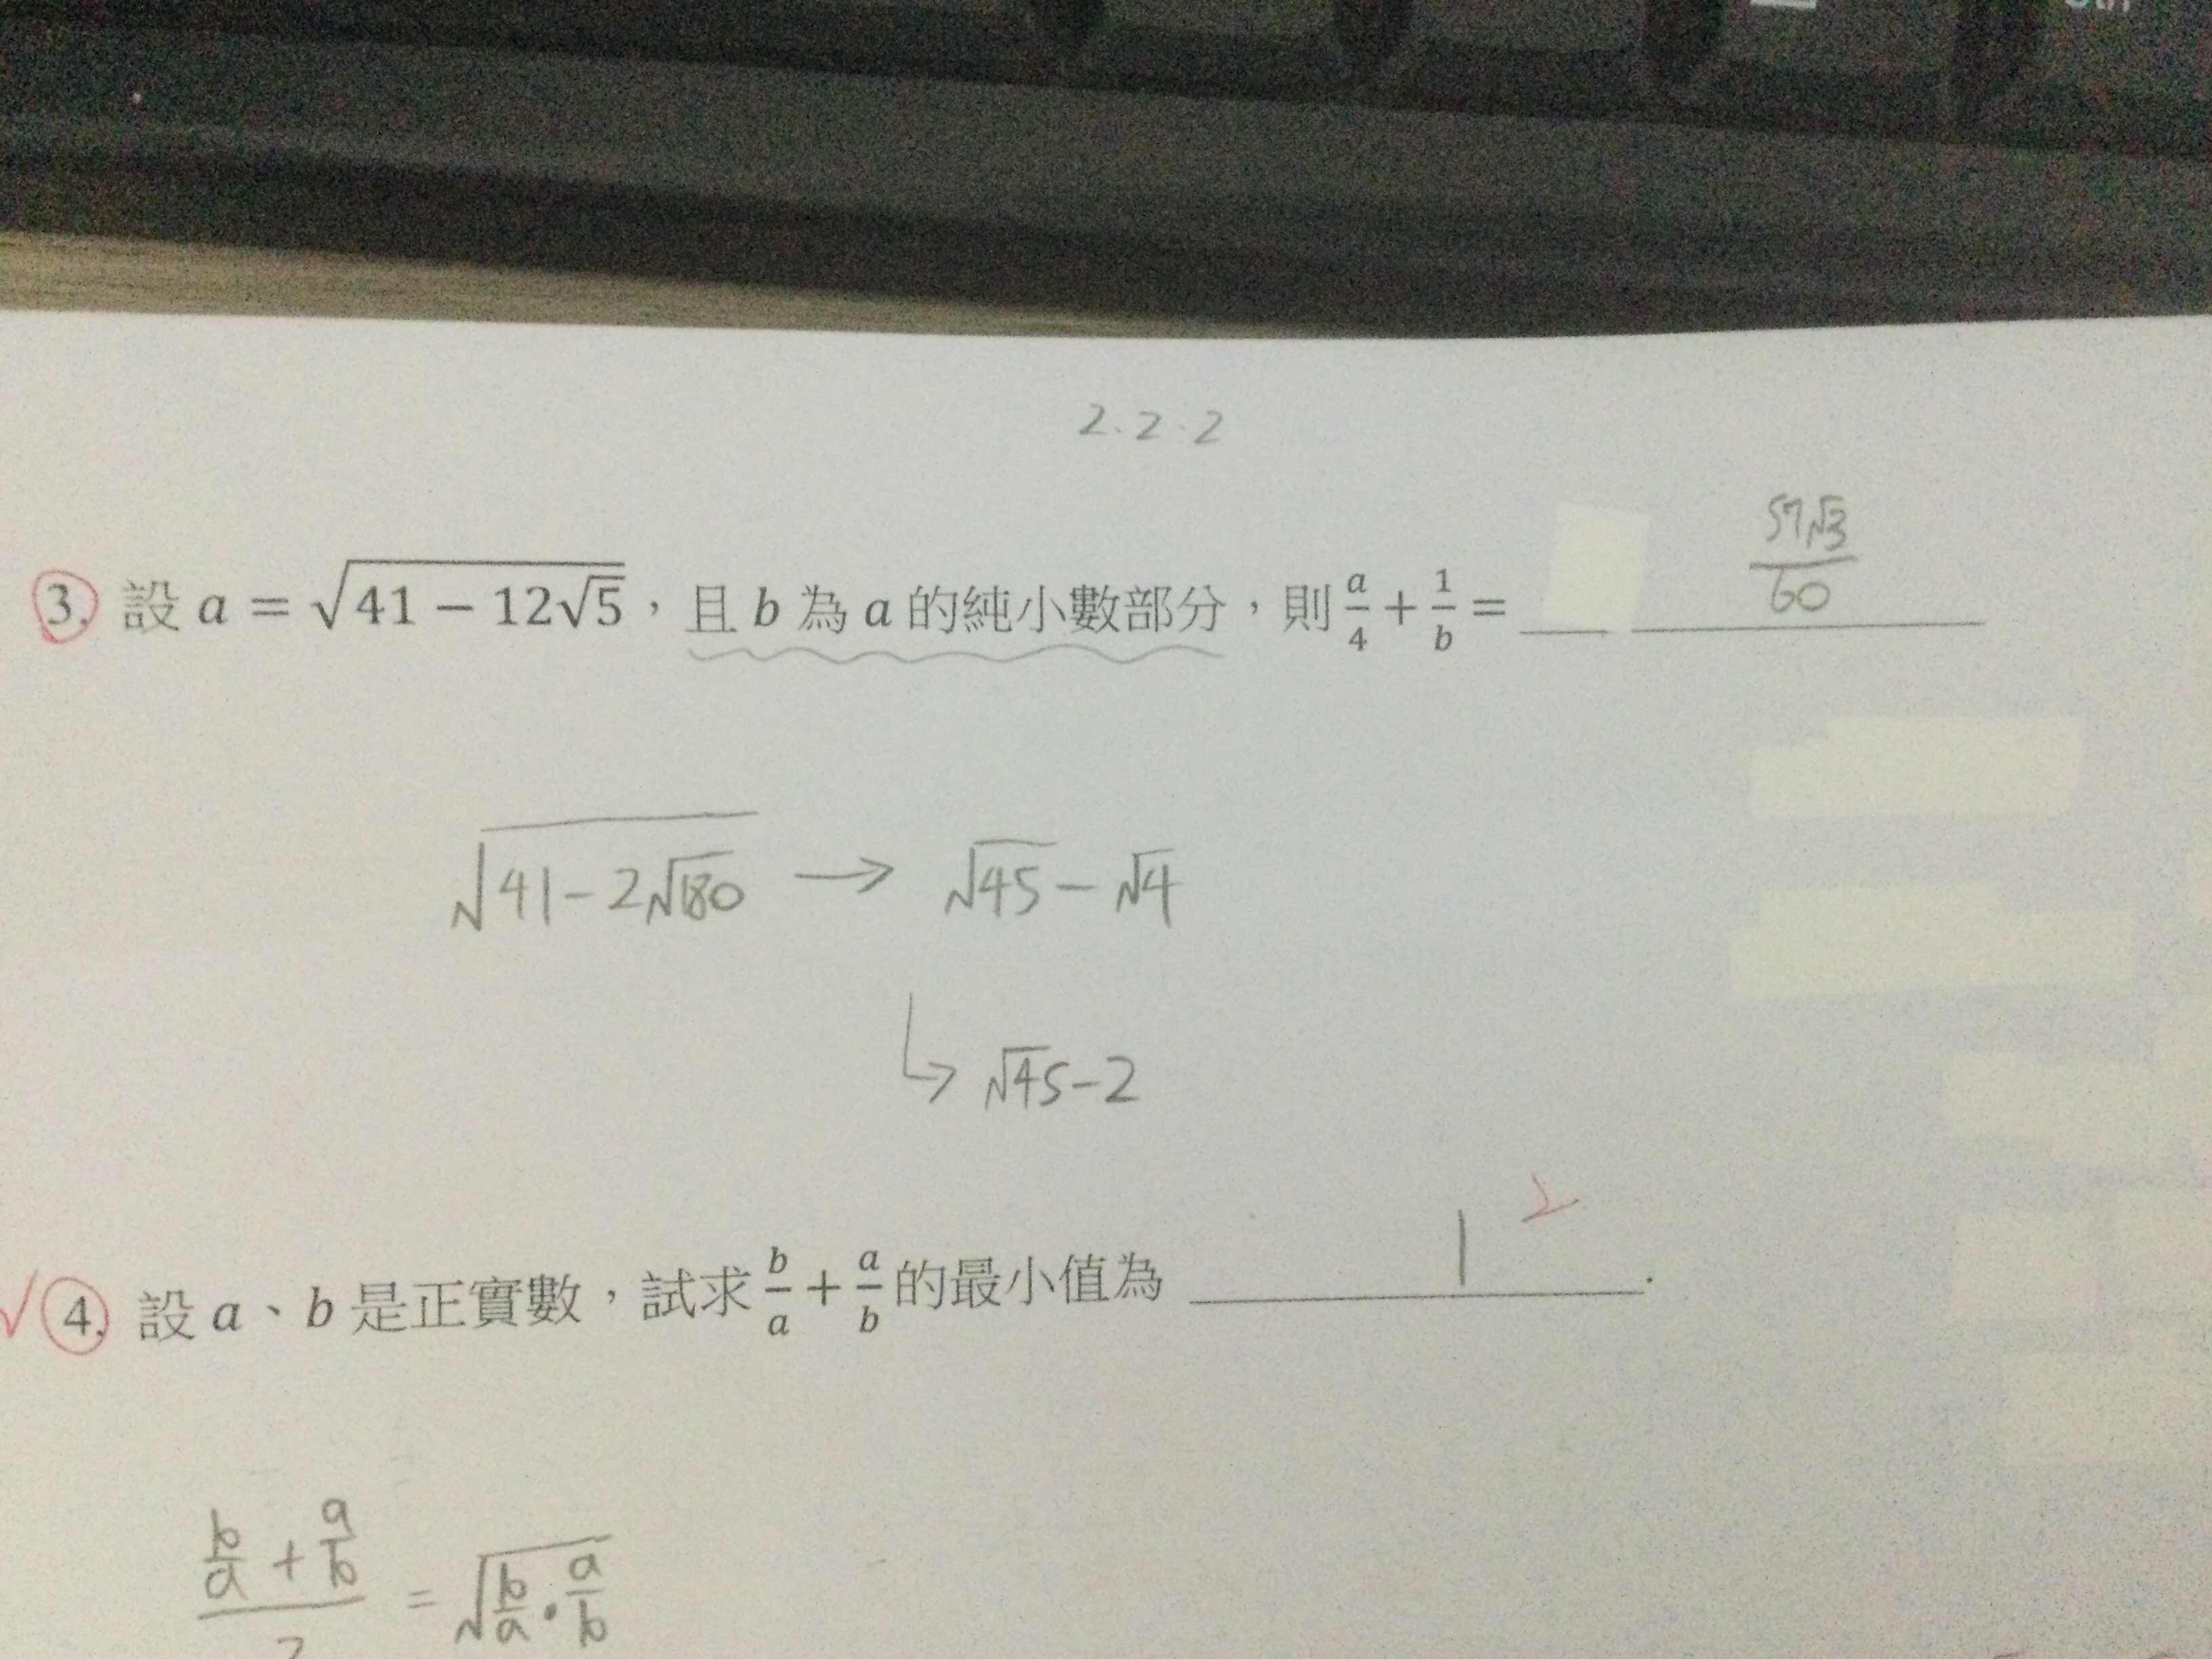 2.2.2
57√3/60
3. 設 a = √(41 − 12√5)，且 b 為 a 的純小數部分，則 a/4 + 1/b =
√(41−2√180) → √45 − √4
↳ √45−2
1 2
√ 4. 設 a、b 是正實數，試求 b/a + a/b 的最小值為 .
(b/a + a/b)/2 = √(b/a · a/b)